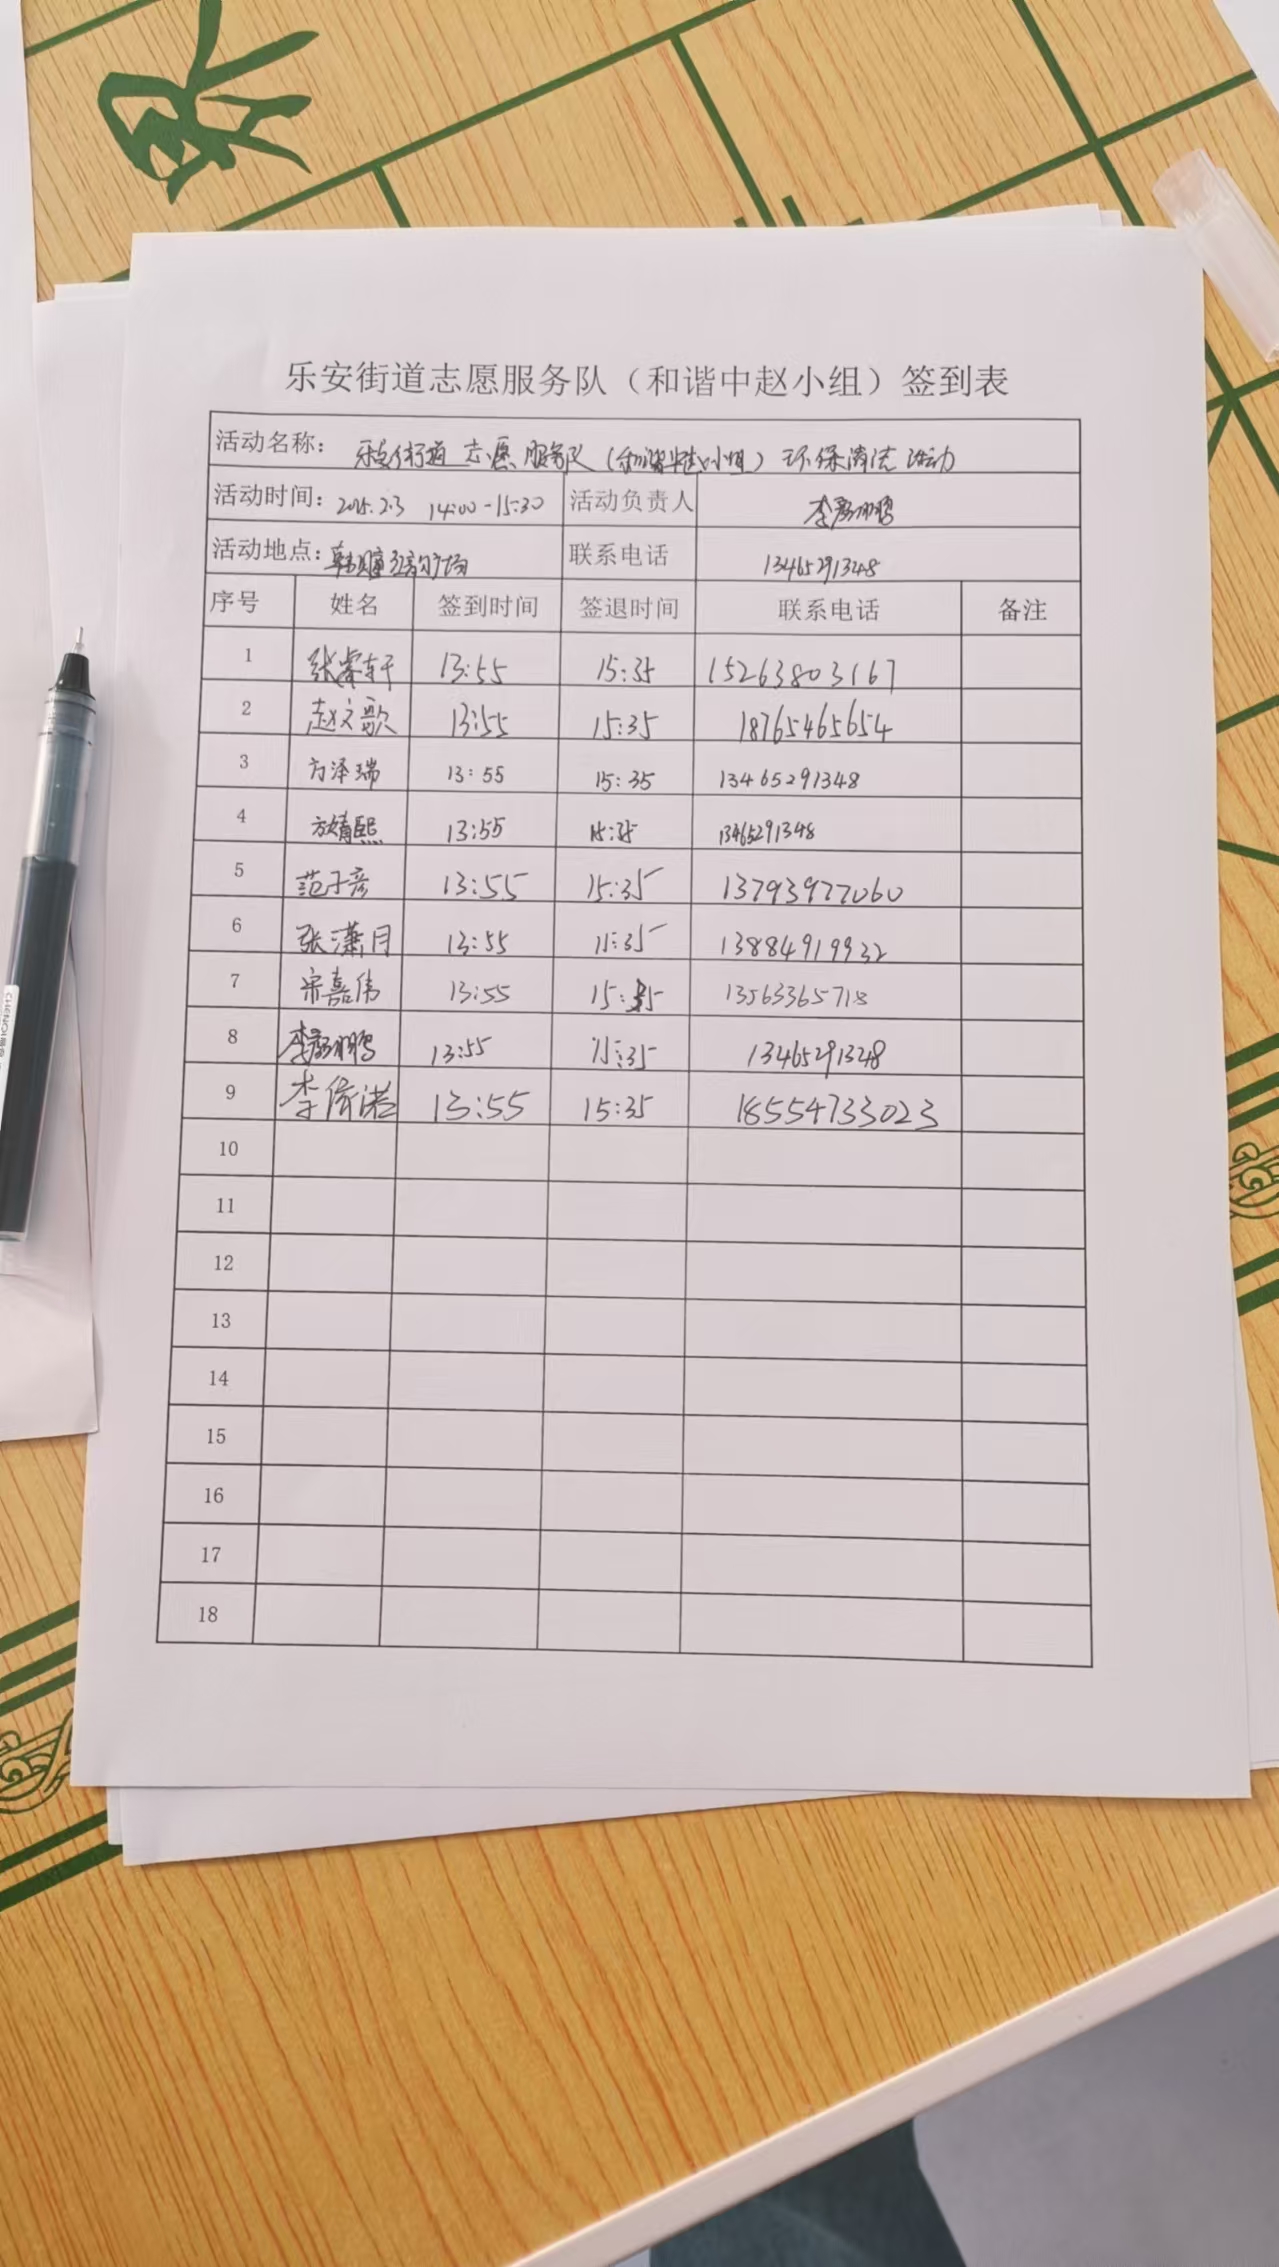 乐安街道志愿服务队（和谐中赵小组）签到表
活动名称： 乐安街道志愿服务队（和谐中赵小组）环保清洁活动
活动时间：2025.2.3 14:00-15:30 活动负责人
活动地点： 广场 联系电话 13465291348
序号 姓名 签到时间 签退时间 联系电话 备注
1 张睿轩 13:55 15:35 15263803167
2 赵文歌 13:55 15:35 18765465654
3 方泽瑞 13:55 15:35 13465291348
4 方婧熙 13:55 15:35 13465291348
5 范子彦 13:55 15:35 13793977060
6 张潇月 13:55 15:35 13884919932
7 宋嘉伟 13:55 15:35 13563365718
8 13:55 15:35 13465291348
9 李依诺 13:55 15:35 18554733023
10
11
12
13
14
15
16
17
18